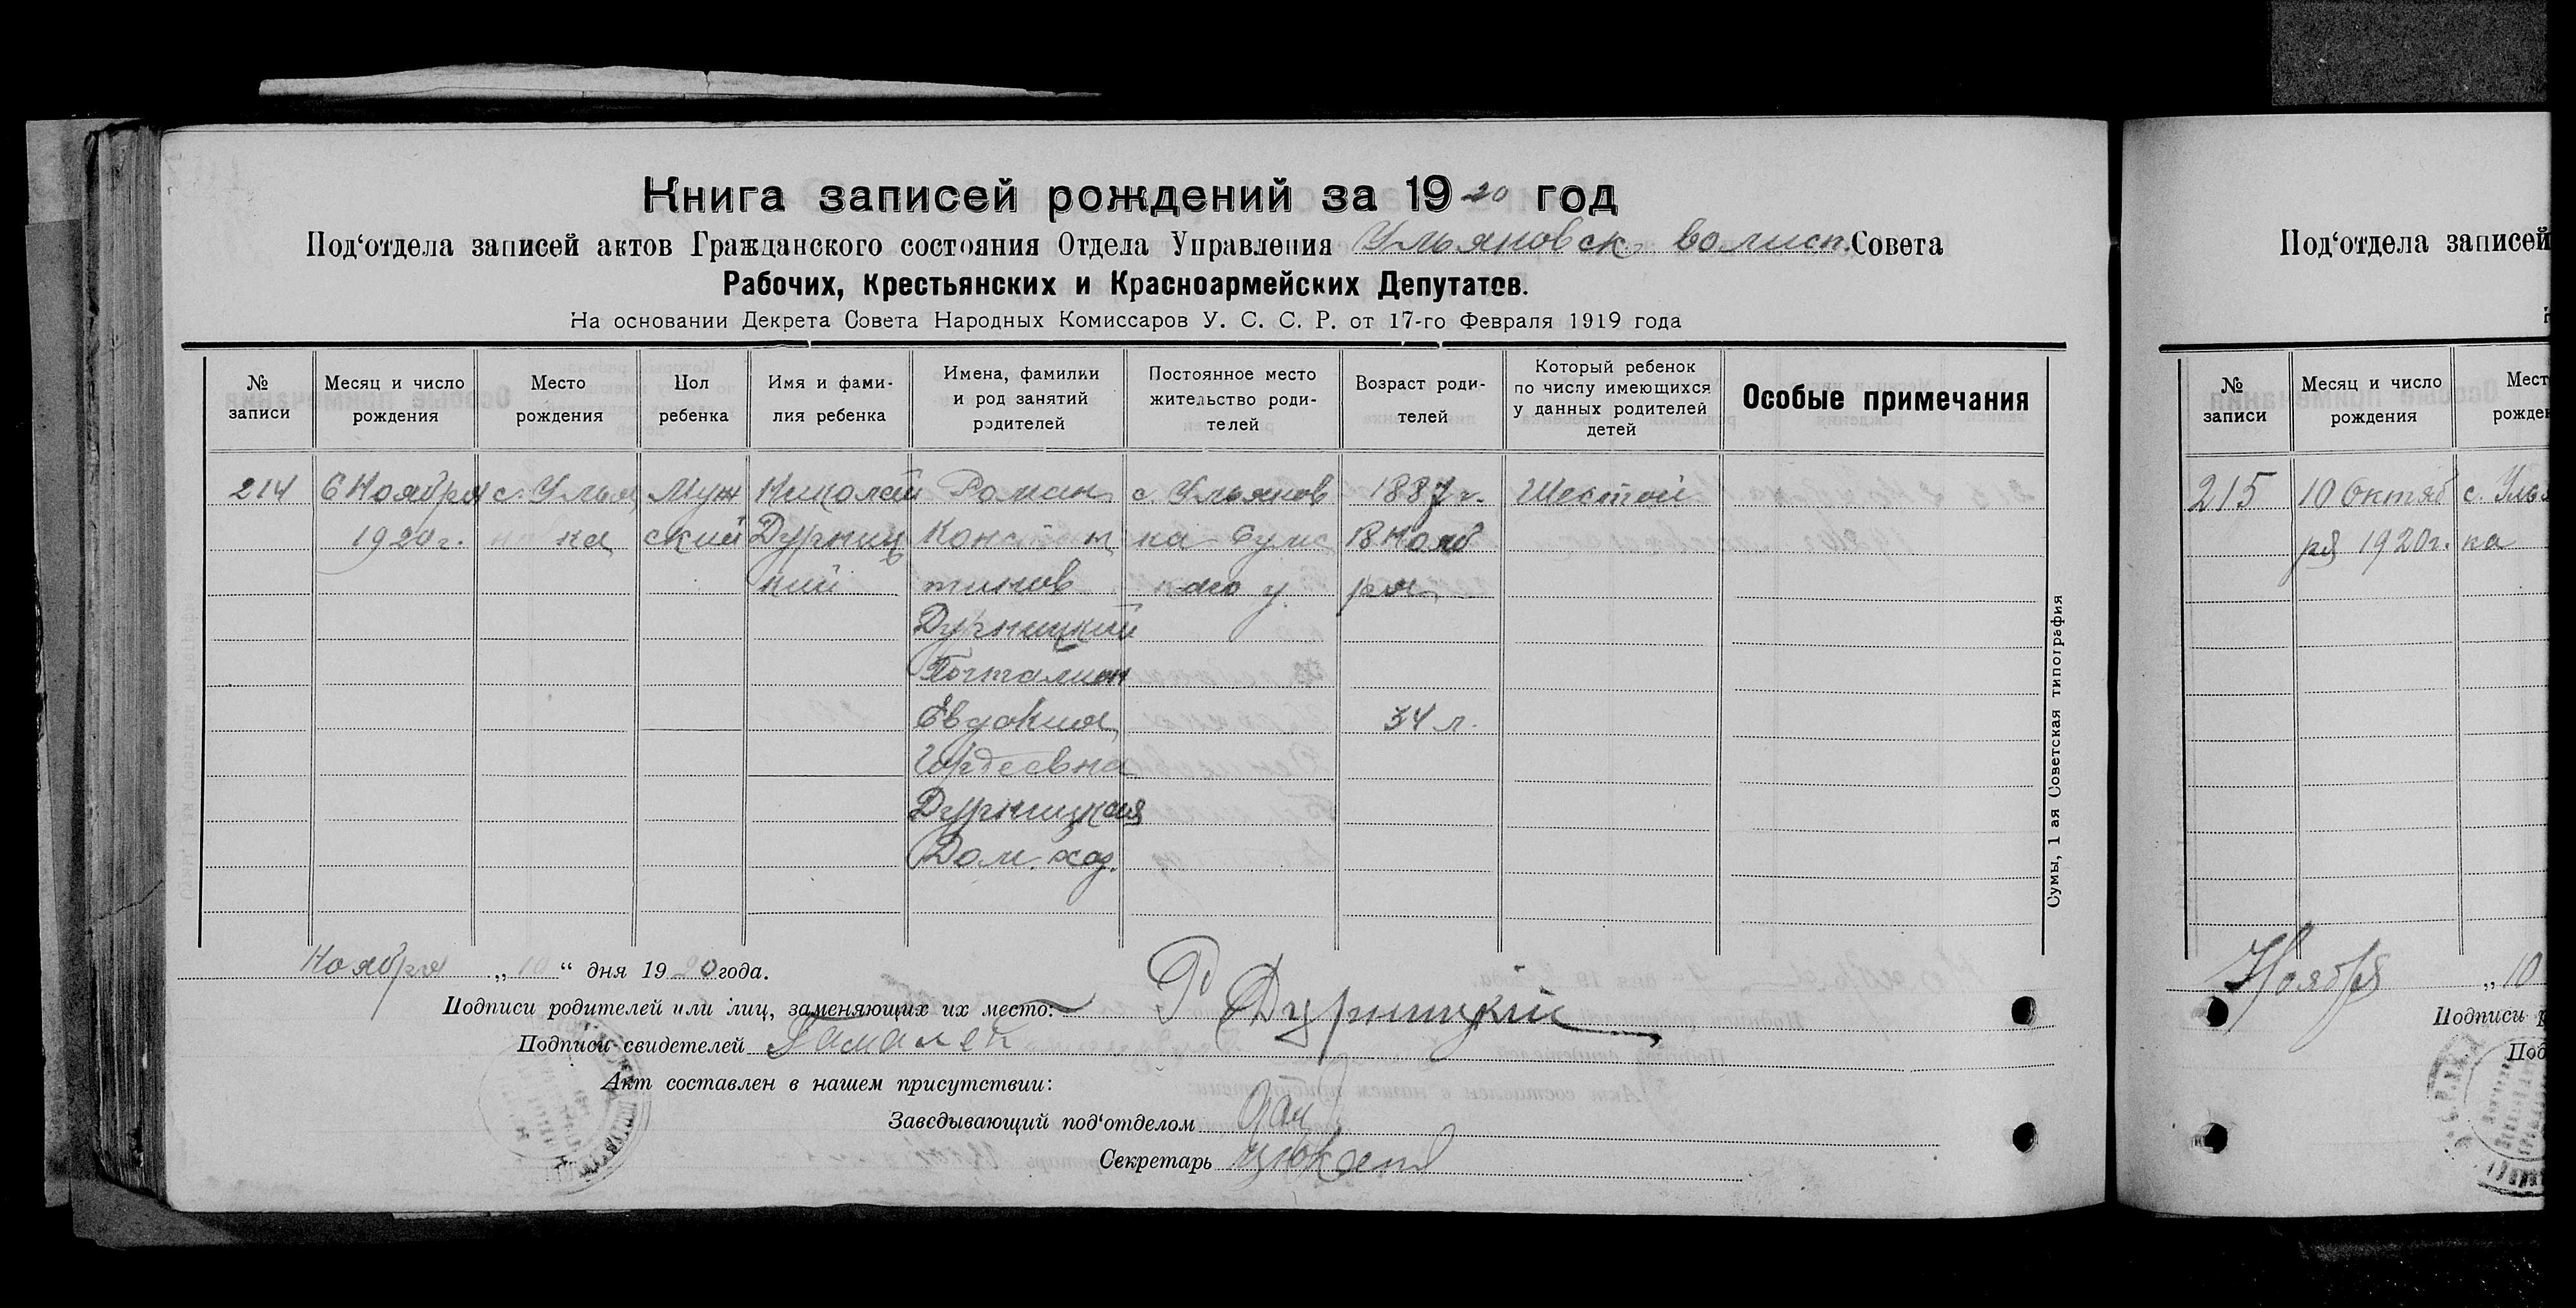 Книга записей рождений за 1920 год
Под‘отдела записей актов Гражданского состояния Отдела Управления Ульяновск. волисп. Совета
Рабочих, Крестьянских и Красноармейских Депутатов.
На основании Декрета Совета Народных Комиссаров У. С. С. Р. от 17-го Февраля 1919 года
№ записи
Месяц и число рождения
Место рождения
Пол ребенка
Имя и фами-
лия ребенка
Имена, фамилии
и род занятий
родителей
Постоянное место
жительство роди-
телей
Возраст роди-
телей
Который ребенок
по числу имеющихся
у данных родителей
детей
Особые примечания
214
6 Ноября
1920 г.
с. Улья
на
Муж
ский
Николай
Дурниц
кий
Роман
Конст
тинов
Дурницкий
Почталион
Евдокия
Гордеевна
Дурницкая
Дом. хоз.
с. Ульянов
ка Сумс
каго у.
1887 г.
18 Нояб
ря
34 л.
Шестой
Ноября „10“ дня 1920 года.
Подписи родителей или лиц, заменяющих их место: Р Дурницкий
Подписи свидетелей
Акт составлен в нашем присутствии:
Заведывающий под‘отделом
Секретарь
Сумы, 1 ая Советская типография
Под‘отдела записей
№ записи
Месяц и число рождения
Мест
рожден
215
10 Октяб
ря 1920 г.
с. Улья
ка
Ноября „10
Подписи р
Под